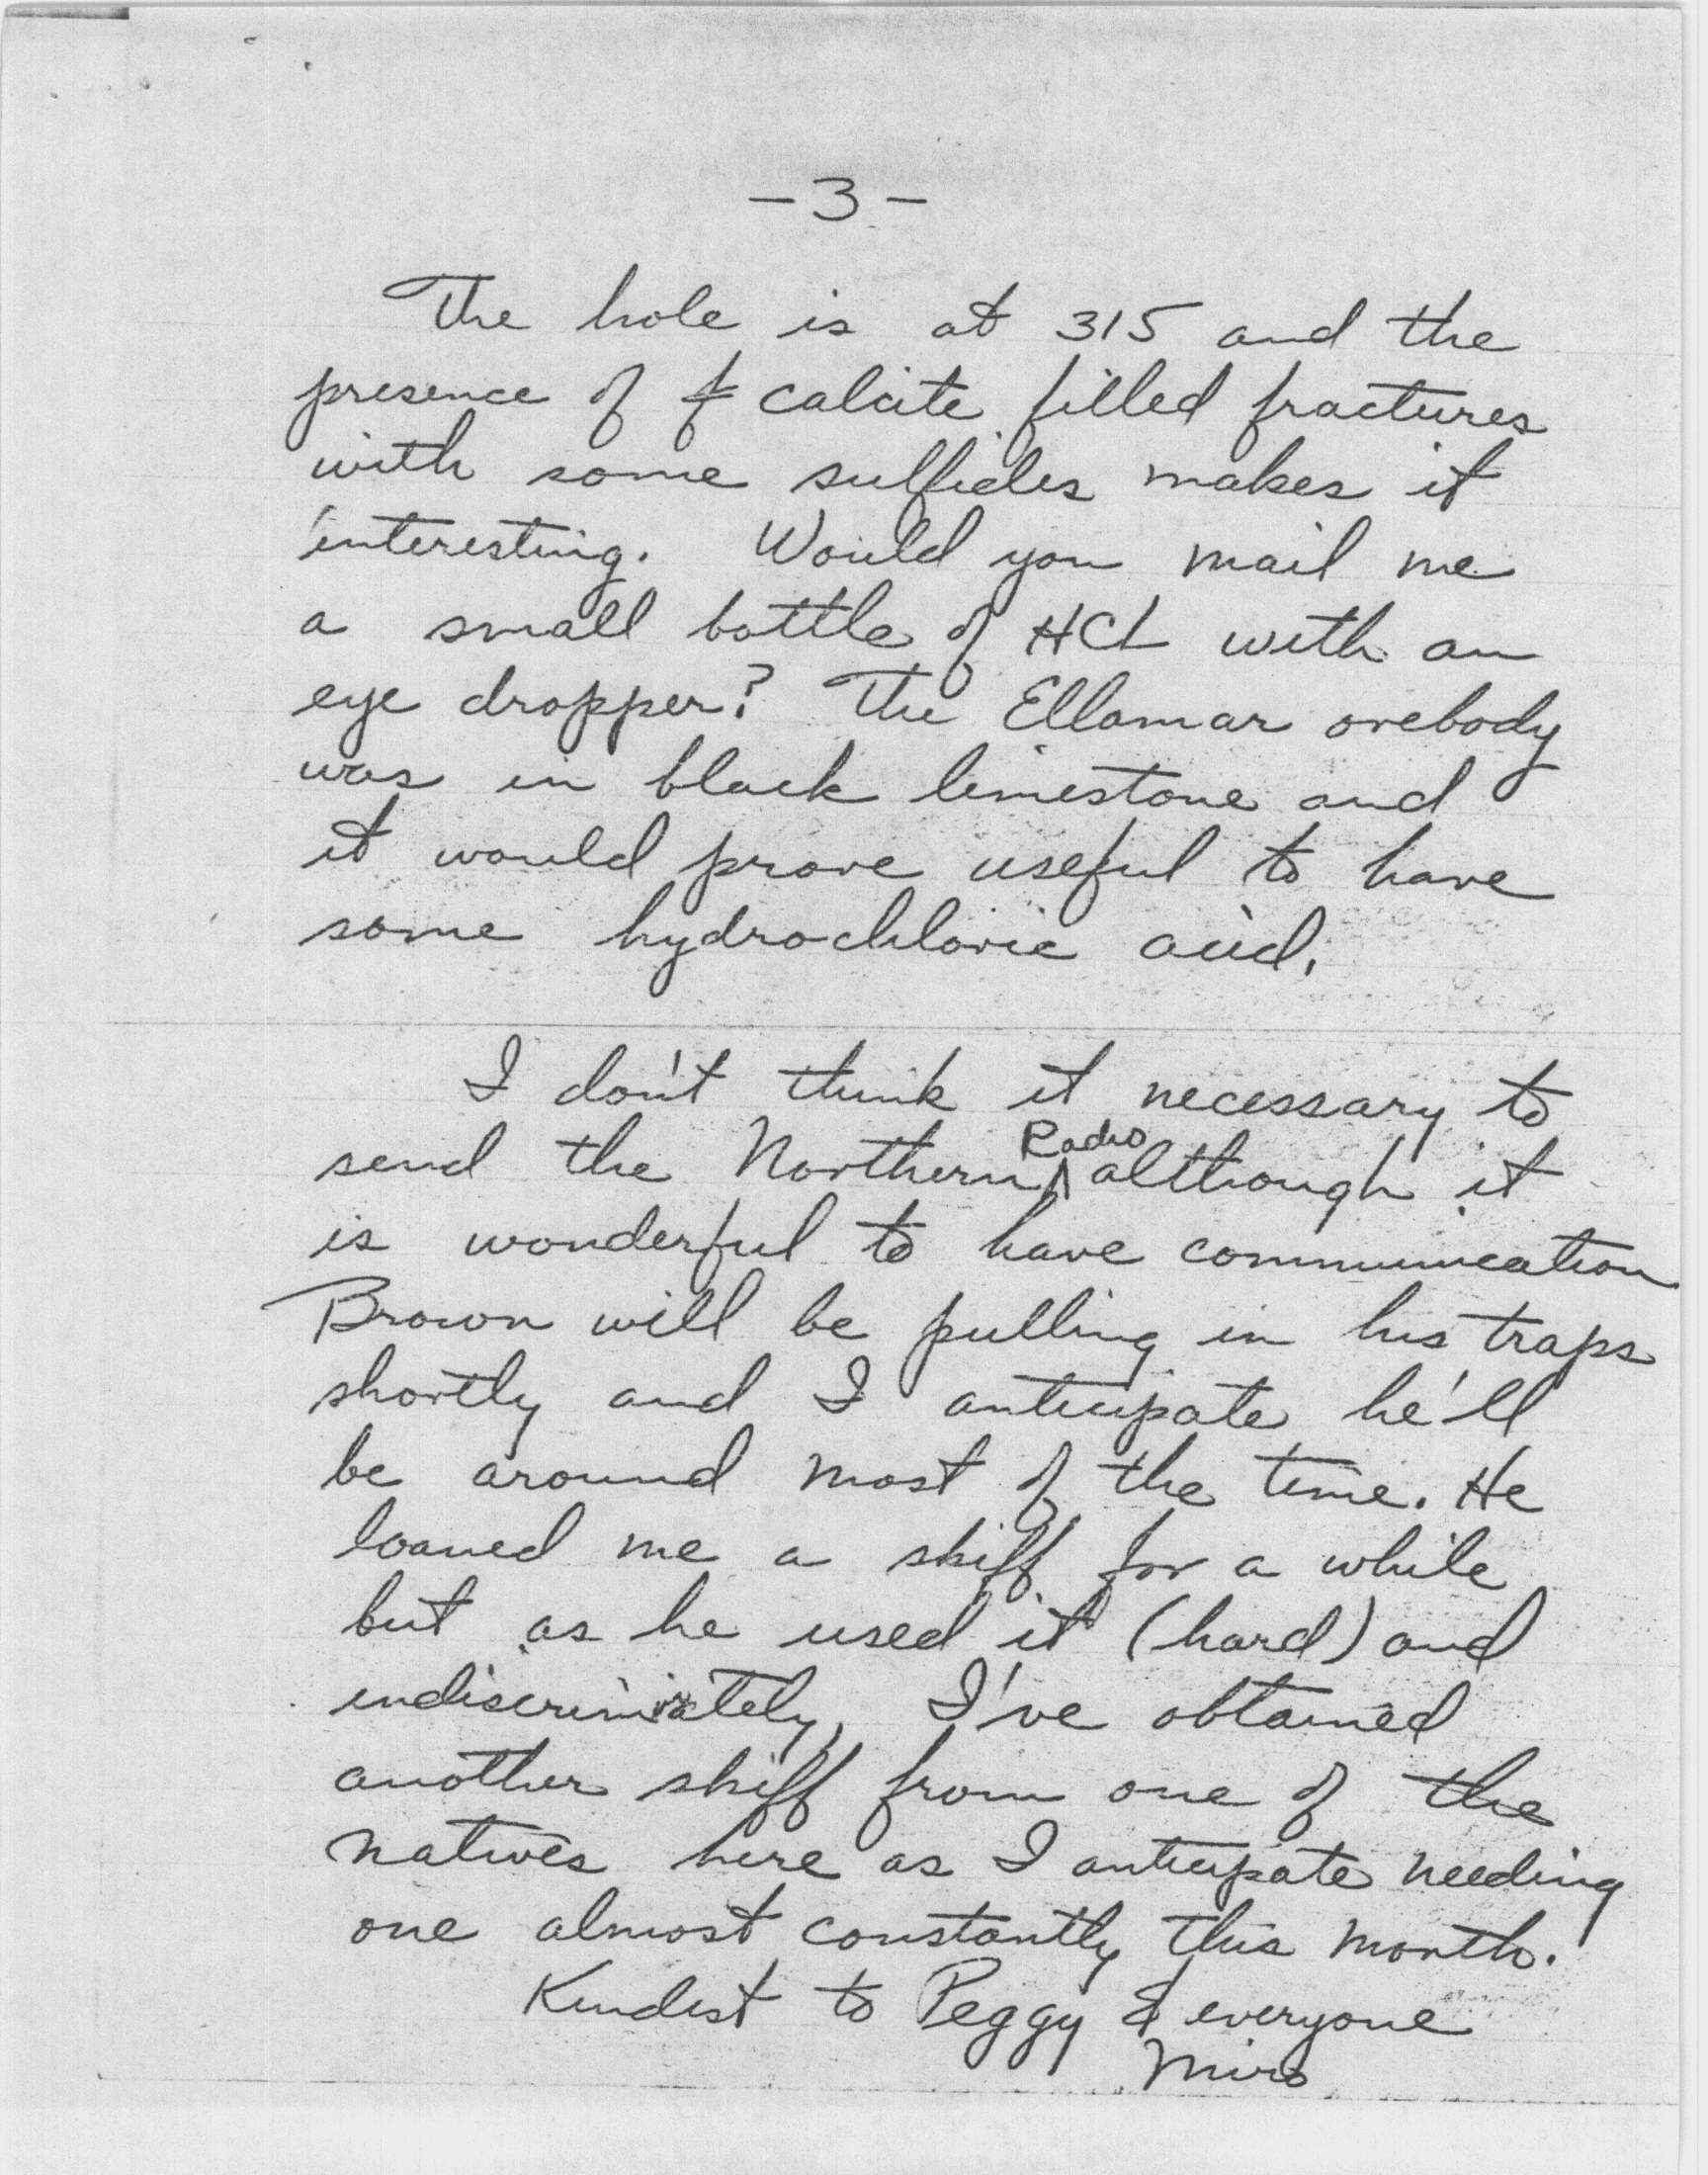 - 3 -
The hole is at 315 and the
presence of f calcite filled fractures
with some sulfides makes it
interesting. Would you mail me
a small bottle of HCL with an
eye dropper? The Ellamar orebody
was in black limestone and
it would prove useful to have
some hydrochloric acid.
I don't think it necessary to
Radio
send the Northern ^ although it
is wonderful to have communication
Brown will be pulling in his traps
shortly and I anticipate he'll
be around most of the time. He
loaned me a skiff for a while
but as he used it (hard) and
indiscriminately, I've obtained
another skiff from one of the
natives here as I anticipate needing
one almost constantly this month.
Kindest to Peggy & everyone
Miro